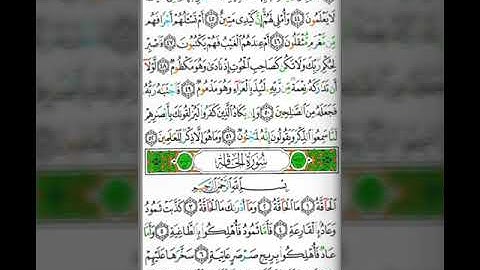 لَا يَعْلَمُونَ ٤٤ وَأُمْلِي لَهُمْ إِنَّ كَيْدِي مَتِينٌ ٤٥ أَمْ تَسْـَٔلُهُمْ أَجْرًا فَهُم
مِّن مَّغْرَمٍ مُّثْقَلُونَ ٤٦ أَمْ عِندَهُمُ ٱلْغَيْبُ فَهُمْ يَكْتُبُونَ ٤٧ فَٱصْبِرْ
لِحُكْمِ رَبِّكَ وَلَا تَكُن كَصَاحِبِ ٱلْحُوتِ إِذْ نَادَىٰ وَهُوَ مَكْظُومٌ ٤٨ لَّوْلَآ
أَن تَدَٰرَكَهُۥ نِعْمَةٌ مِّن رَّبِّهِۦ لَنُبِذَ بِٱلْعَرَآءِ وَهُوَ مَذْمُومٌ ٤٩ فَٱجْتَبَٰهُ رَبُّهُۥ
فَجَعَلَهُۥ مِنَ ٱلصَّٰلِحِينَ ٥٠ وَإِن يَكَادُ ٱلَّذِينَ كَفَرُوا۟ لَيُزْلِقُونَكَ بِأَبْصَٰرِهِمْ
لَمَّا سَمِعُوا۟ ٱلذِّكْرَ وَيَقُولُونَ إِنَّهُۥ لَمَجْنُونٌ ٥١ وَمَا هُوَ إِلَّا ذِكْرٌ لِّلْعَٰلَمِينَ ٥٢
سُورَةُ ٱلْحَاقَّةِ
بِسْمِ ٱللَّهِ ٱلرَّحْمَٰنِ ٱلرَّحِيمِ
ٱلْحَآقَّةُ ١ مَا ٱلْحَآقَّةُ ٢ وَمَآ أَدْرَىٰكَ مَا ٱلْحَآقَّةُ ٣ كَذَّبَتْ ثَمُودُ
وَعَادٌۢ بِٱلْقَارِعَةِ ٤ فَأَمَّا ثَمُودُ فَأُهْلِكُوا۟ بِٱلطَّاغِيَةِ ٥ وَأَمَّا
عَادٌ فَأُهْلِكُوا۟ بِرِيحٍ صَرْصَرٍ عَاتِيَةٍ ٦ سَخَّرَهَا عَلَيْهِمْ